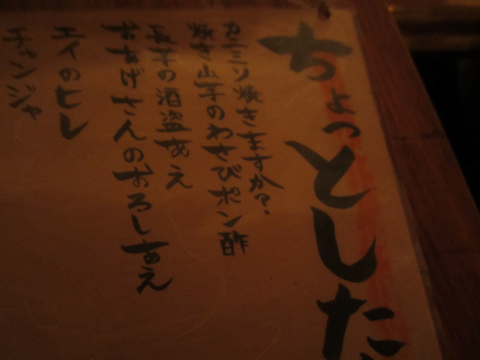 ちょっとした
カニミソ焼きますか?
焼き山芋のわさびポン酢
長芋の酒盗あえ
おあげさんのおろしあえ
エイのヒレ
チャンジャ